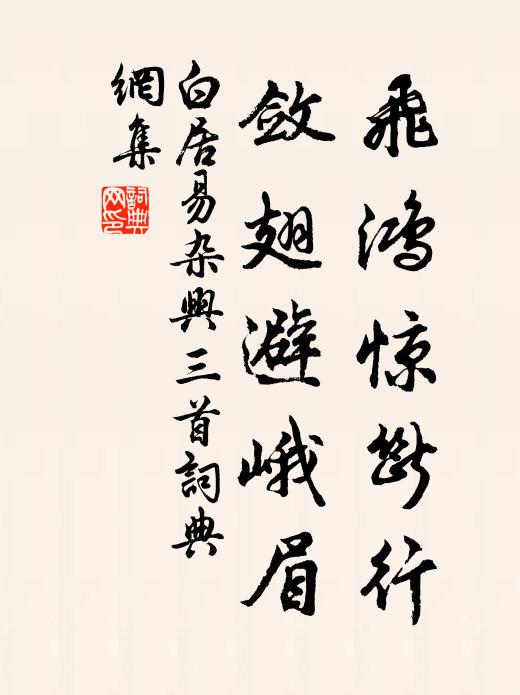 飛鴻惊斷行
斂翅避峨眉
白居易杂興三首詞典
網集
詞典網印